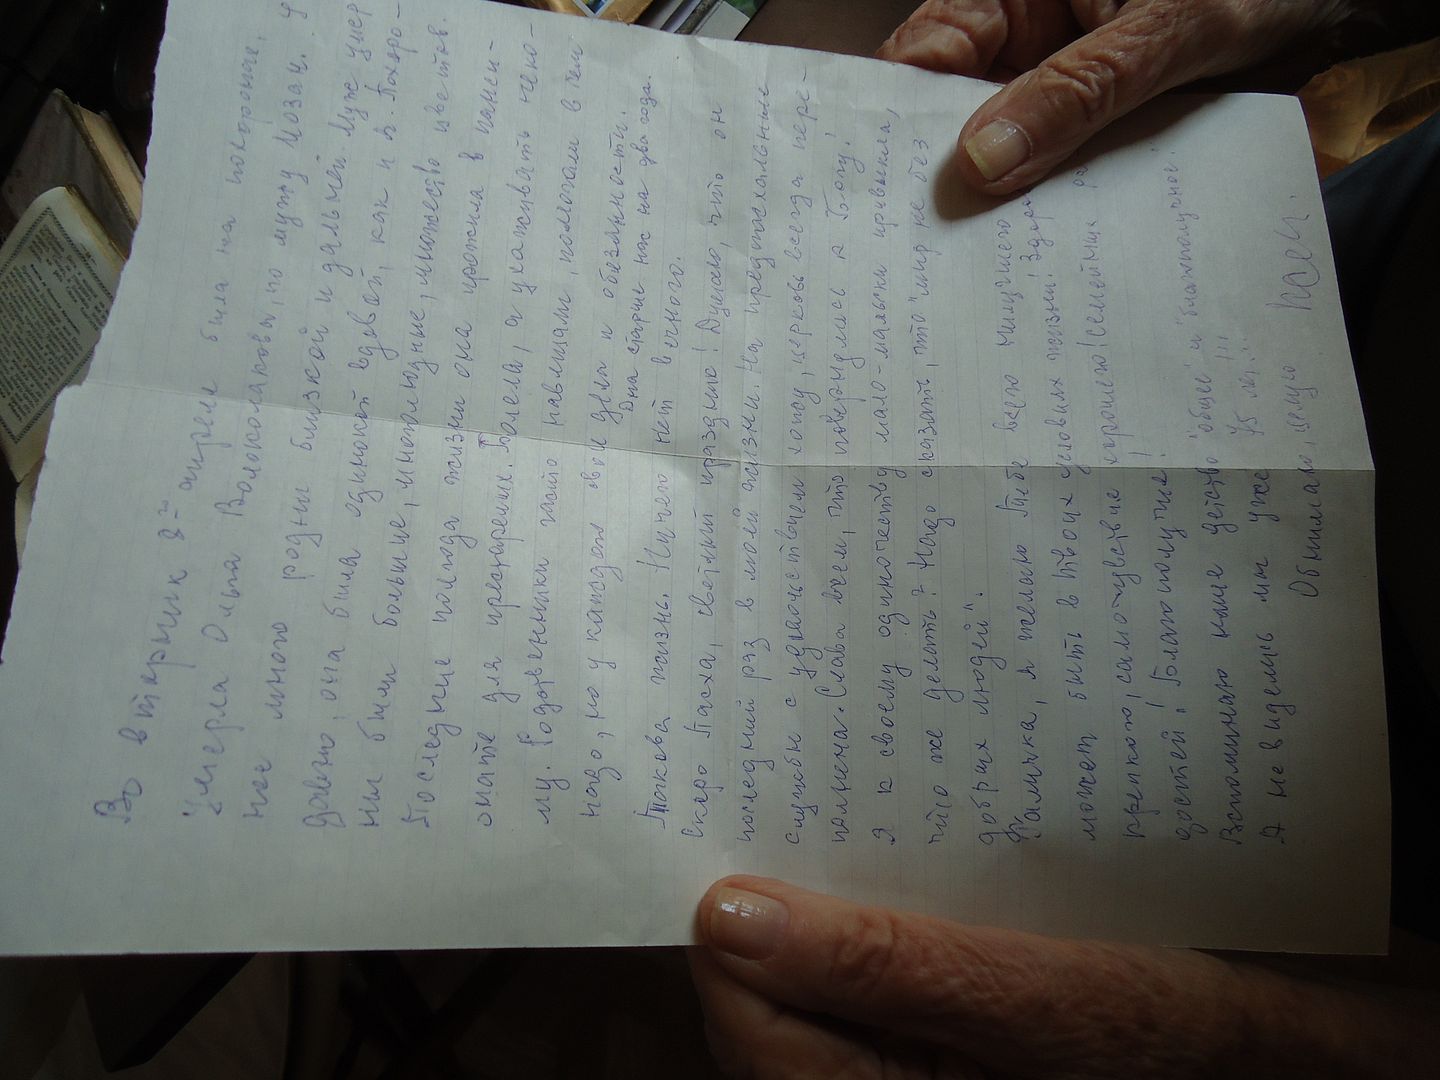 Во вторник 2го апреля была на похоронах.
Умерла Ольга Волоколакова, по мужу Мозан. У
нее много родни близкой и дальней. Муж умер
давно, она была одинокой вдовой, как и я. Похоро-
ны были большие, многолюдные, множество цветов.
Последние полгода жизни она прожила в панси-
онате для престарелых. Болела, а ухаживать неко-
му. Родственники часто навещали, помогали в чем
надо, но у каждого свои дела и обязанности.
Она старше нас на два года.
Такова жизнь. Ничего нет вечного.
Скоро Пасха, светлый праздник! Думаю, что он
последний раз в моей жизни. На предпасхальные
службы с удовольствием хожу, церковь всегда пере-
полнена. Слава всем, что повернулись к Богу!
Я к своему одиночеству мало-мальски привыкла,
что же делать? Надо сказать, что "мир не без
добрых людей".
Галичка, я желаю Тебе всего наилучшего
может быть в твоих условиях жизни! Здоровья
крепкого, самочувствие хорошего! Семейных ра-
достей! Благополучия!
Вспоминаю наше детство "общее" и "благополучное".
А не виделись мы уже 45 лет...!!!
Обнимаю, целую.